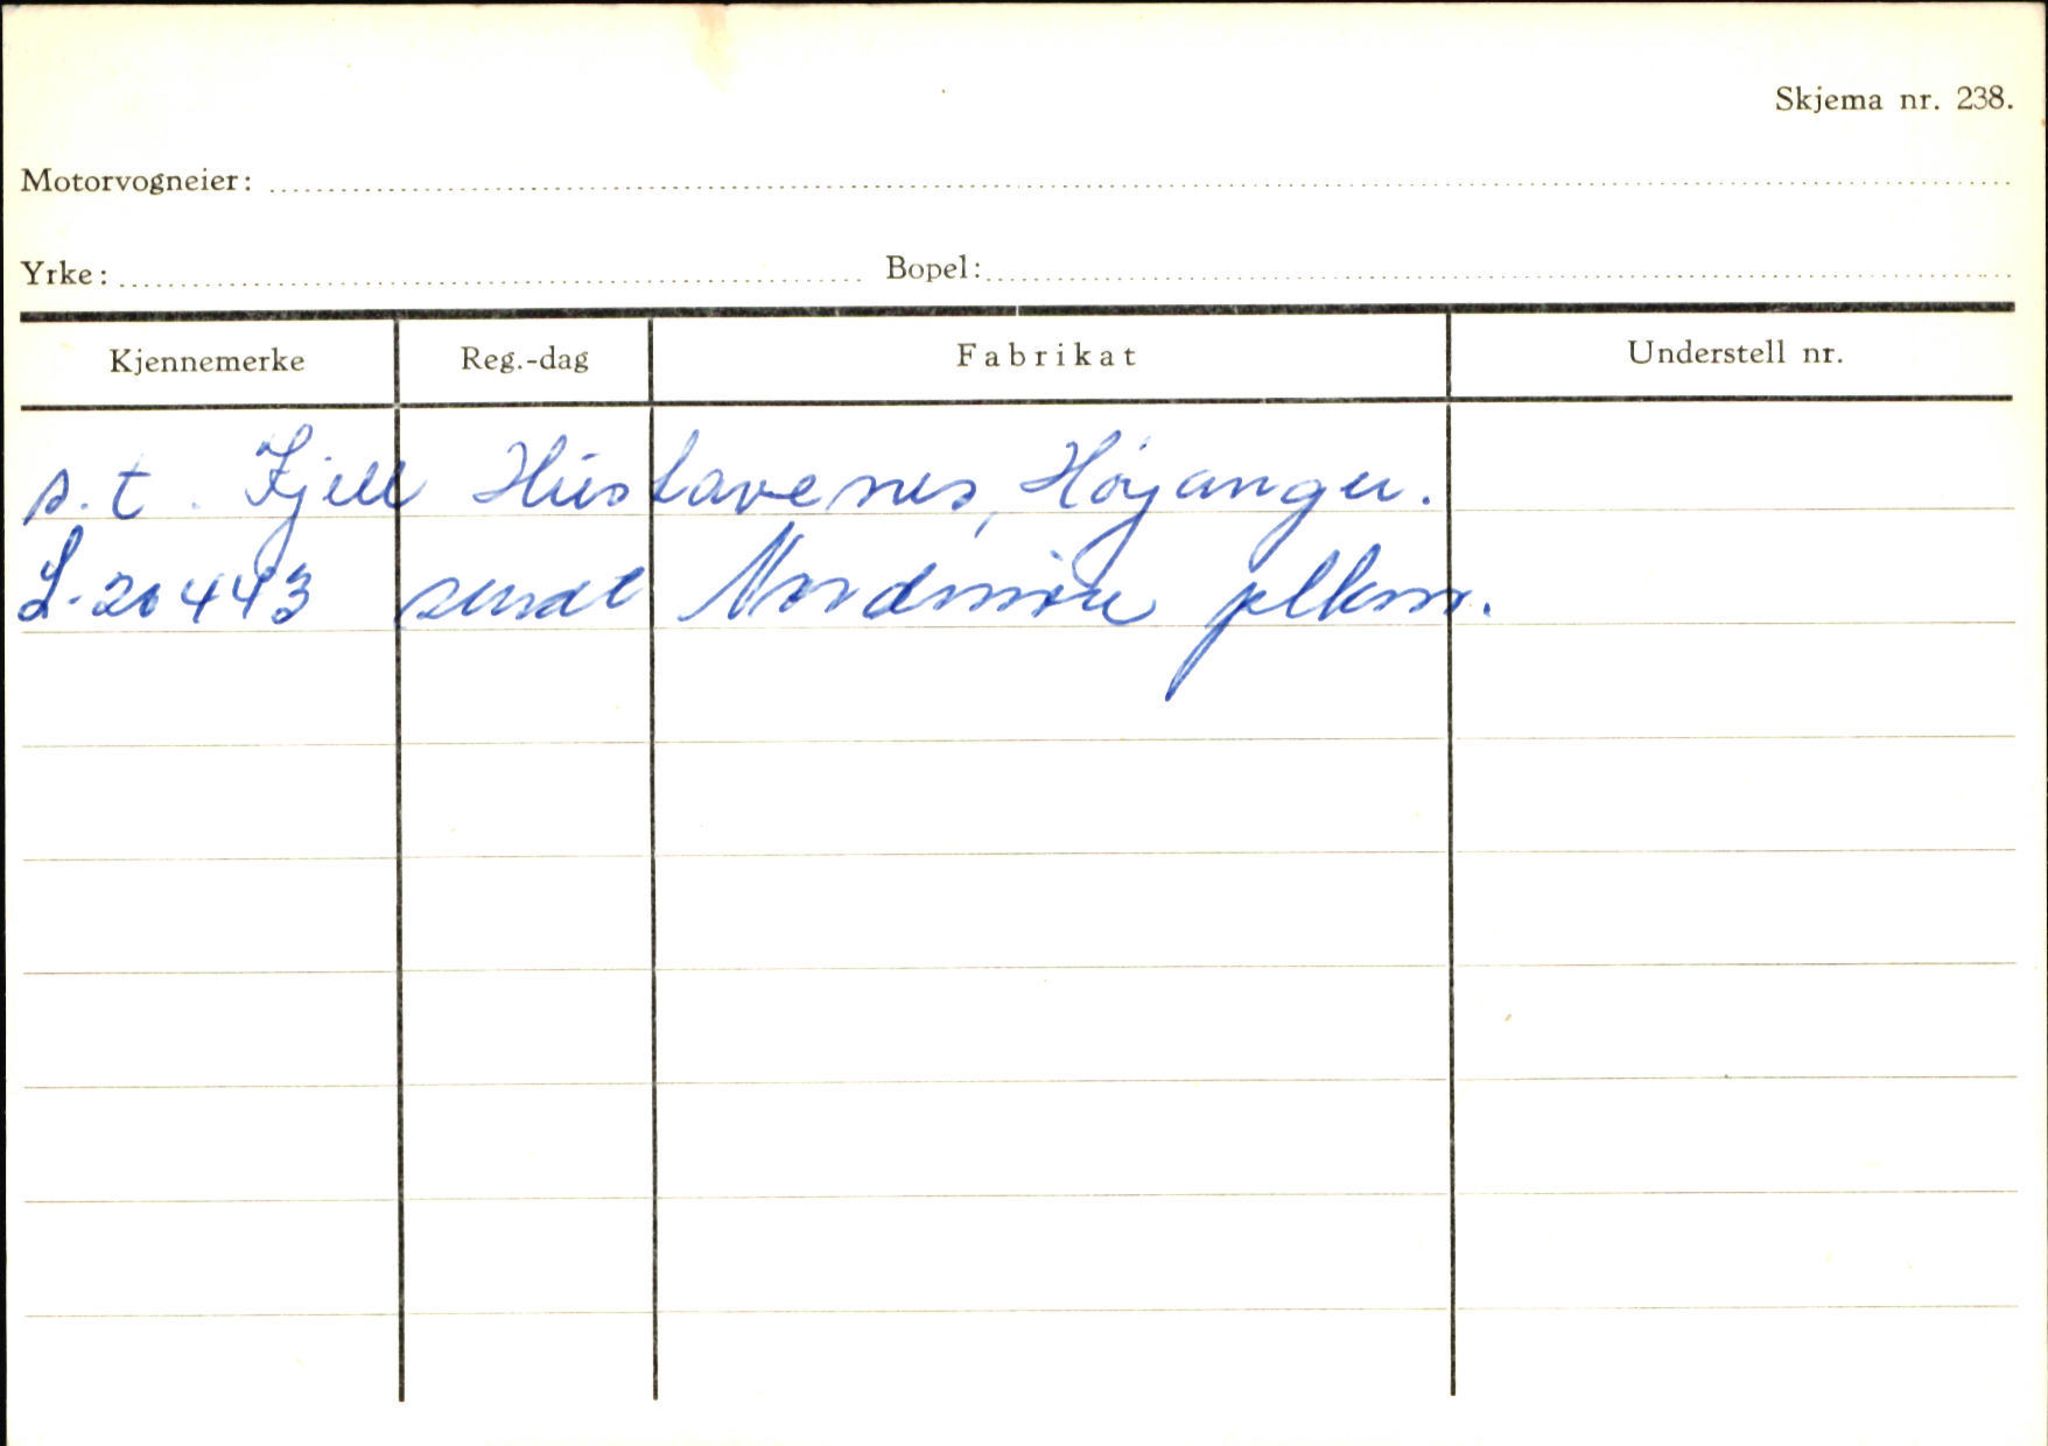 Skjema nr. 238.
Motorvogneier:
Yrke: Bopel:
Kjennemerke Reg.-dag Fabrikat Understell nr.
s.t. Kjell Hustavenes, Høyanger.
S-20443 sendt Nordmøre plkm.